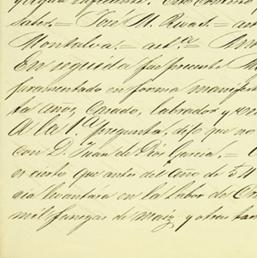 Labor. = José M. Rivad. = an
Montalva. = ant.
En seguida fue presente
juramentado en forma manifest
ta años, casado, labrador y
A la 1.ª pregunta, dijo que no
con D. Juan de Dios García. =
es cierto que antes del año de 54
cia levantára en la Labor de
mil fanegas de maiz, y otras tan